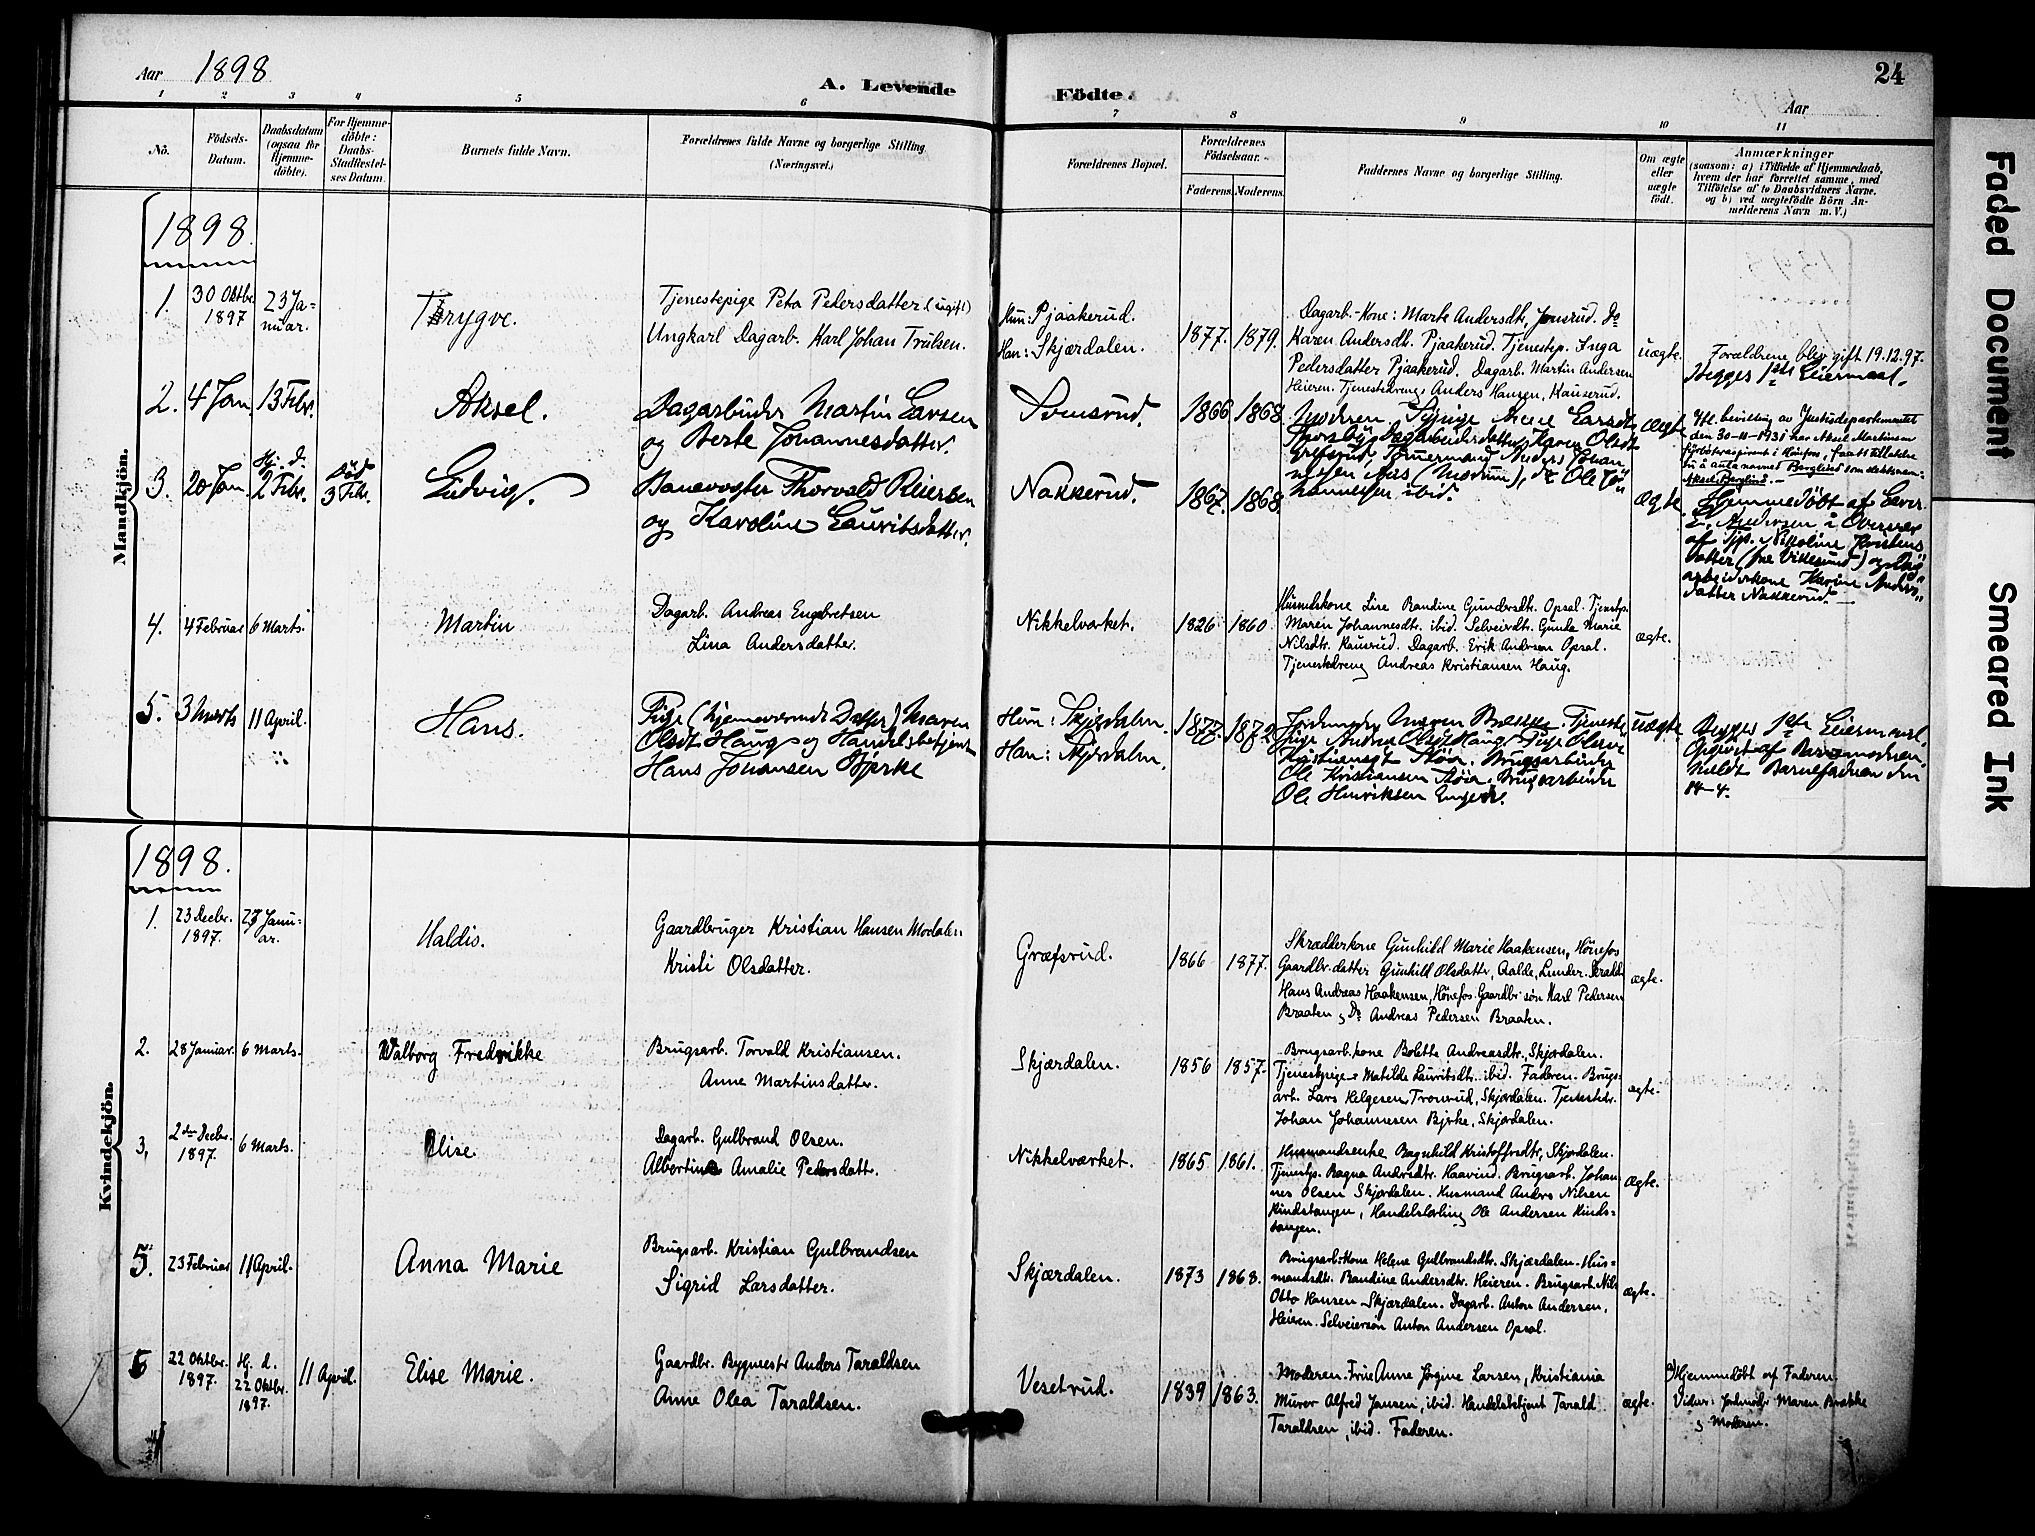 Aar 1898
A. Levende Födte.
Aar
24
1 2 3 4 5 6 7 8 9 10 11
No.
Födsels-Datum.
Daabsdatum (ogsaa for Hjemme-döbte).
For Hjemme-döbte: Daabs-Stadfæstel-ses Datum.
Barnets fulde Navn.
Forældrenes fulde Navne og borgerlige Stilling (Næringsvei.)
Forældrenes Bopæl.
Forældrenes Födselsaar.
Faderens. Moderens.
Faddernes Navne og borgerlige Stilling.
Om ægte eller uægte födt.
Anmærkninger
(saasom: a) i Tilfælde af Hjemmedaab,
hvem der har forrettet samme, med
Tilföielse af to Daabsvidners Navne.
og b) ved uægtefödte Börn An-
melderens Navn m. V.)
Mandkjön.
1898.
1. 30 Oktbr. 1897 23 Ja=nuar. Trygve.
Tjenestepige Peta Pedersdatter (ugift)
Ungkarl Dagarb. Karl Johan Trulsen.
Hun: Pjaakerud.
Han: Skjærdalen.
1877. 1879.
Dagarb.-Kone: Marte Andersdt. Jonsrud. Do
Karen Andersdt. Pjaakerud. Tjenestep. Inga
Pedersdatter Pjaakerud. Dagarb. Martin Andersen
Heieren. Tjenestedreng Anders Hansen, Kauserud.
uægte.
Forældrene blev gift 19.12.97.
Begges 1ste Leiermaal.
2. 4 Jan 13 Febr. Aksel.
Dagarbeider Martin Larsen
og Berte Johannesdatter.
Somsrud. 1866 1868
Modren
ægte
Ifl. bevilling av Justisdepartementet
den 30-11-1931 har Aksel Martinsen
Aksel Berglind.
3. 20 Jan Hj. d. 2 Febr. död 3 Febr. Ludvig.
Banevogter Thorvald Reiersen
og Karoline Lauritsdatter.
Nakkerud. 1867. 1868
ægte
Hjemmedöbt af
datter Nakkerud.
4. 4 Februar 6 Marts. Martin
Dagarb. Andreas Engebretsen
Lina Andersdatter.
Nikkelværket. 1826 1860
Husmdskone Lise Randine Gundersdt. Opsal. Tjenstp.
Maren Johannesdt. ibid. Selveierdt. Gunda Marie
Nilsdt. Kauserud. Dagarb. Erik Andersen Opsal.
Tjenestedreng Andreas Kristiansen Haug.
ægte.
5. 3 Marts 11 April. Hans.
Pige (hjemmeværende Datter) Maren
Olsdt. Haug og Handelsbetjent
Hans Johansen Bjerke
Hun: Skjærdalen
Han: Skjærdalen.
1877. 1872
Jordemoder Maren Brække. Tjeneste
pige
Ole Kristiansen Støa. Brugsarbeider
Ole Henriksen Enger.
uægte
Begges 1ste Leiermaal.
Opgivet af Barnemodren.
Meldt Barnefadren den
14-4.
Kvindekjön.
1898.
1. 23 Decbr. 1897. 23 Janu=ar. Haldis.
Gaardbruger Kristian Hansen Modalen
Kristi Olsdatter.
Græfsrud. 1866 1877.
Skrædderkone Gunhild Marie Haakensen, Hönefos
Gaardbr.datter Gunhild Olsdatter, Aalde, Lunder.
Hans Andreas Haakensen, Hönefos. Gaardbr. sön Karl Pedersen
Braaten, Do Andreas Pedersen Braaten.
ægte.
2. 28 Januar. 6 Marts. Valborg Fredrikke
Brugsarb. Torvald Kristiansen.
Anne Martinsdatter.
Skjærdalen. 1856 1857.
Brugsarb.kone Bolette Andreasdt., Skjærdalen.
Tjenestepige Matilde Lauritsdt. ibid. Faderen. Brugs=
arb. Lars Helgesen Tronrud, Skjærdalen. Tjenestedr.
Johan Johannesen Bjerke, Skjærdalen.
ægte.
3, 2den Decbr. 1897. 6 Marts. Elise
Dagarb. Gulbrand Olsen.
Albertine Amalie Pedersdatt.
Nikkelværket. 1865 1861.
Husmandsenke Ragnhild Kristoffersdt., Skjærdalen.
Tjenstp. Ragna Andersdtr. Haavind. Brugsarb. Johan
nes Olsen Skjærdalen. Husmand Anders Nilsen
Hindstangen, Handelslærling Ole Andersen Hinds=
tangen.
ægte.
5. 23 Februar 11 April. Anna Marie
Brugsarb. Kristian Gulbrandsen
Sigrid Larsdatter.
Skjærdalen. 1873 1868.
Brugsarb.kone Helene Gulbrandsdt. Skjærdalen. Hus=
mandsdt. Randine Andersdt. Heieren. Brugsarb. Nils
Otto Hansen Skjærdalen. Dagarb. Anton Andersen,
Heieren. Selveiersön Anton Andersen Opsal.
ægte.
6 22 Oktbr. 1897. Hj. d. 22 Oktbr. 1897. 11 April. Elise Marie.
Gaardbr. Bygmester Anders Taraldsen
Anne Olea Taraldsen.
Vesetrud. 1839 1863.
Moderen. Frue Anne Jörgine Larsen, Kristiania
Murer Alfred Jansen, ibid. Handelsbetjent Tarald
Taraldsen, ibid. Faderen.
ægte.
a) Hjemmedöbt af Faderen.
Vidner: Jordmoder Maren Brække
og Moderen.
Faded Document
Smeared Ink